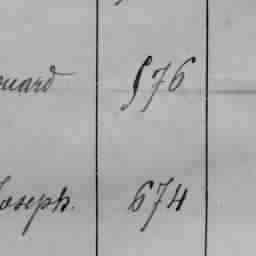 ouard 576
Joseph. 674